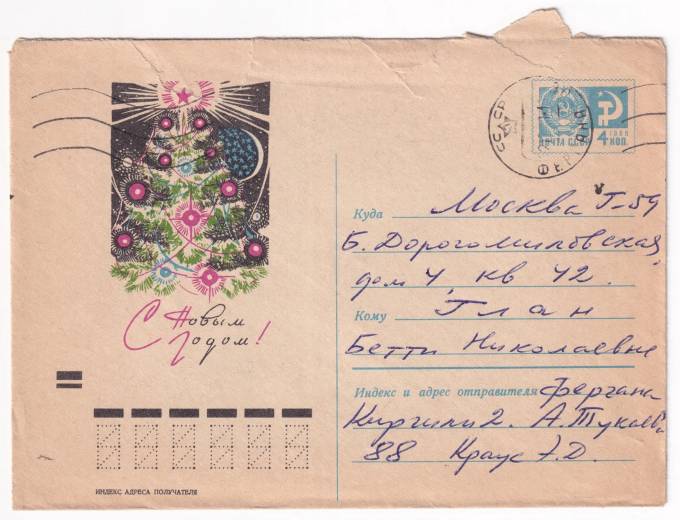 С Новым
Годом!
СССР
ФЕРГАНА
ПОЧТА СССР
1966
4 КОП.
Куда Москва Г-59
Б. Дорогомиловская,
дом 4, кв 42.
Кому Глан
Бетти Николаевне
Индекс и адрес отправителя Фергана
Киргили 2. А. Тукаева
88 Краус Э.Д.
ИНДЕКС АДРЕСА ПОЛУЧАТЕЛЯ